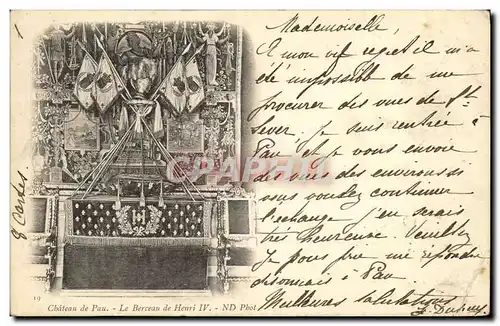 Mademoiselle,
A mon vif regret il m'a
été impossible de me
procurer des vues de St
Sever. Je suis rentrée à
Pau et je vous envoie
des vues des environs si
vous voulez continuer
l'échange j'en serais
très heureuse. Veuillez
je vous prie me répondre
à Pau
Meilleures salutations
8 cartes.
19
Château de Pau. - Le Berceau de Henri IV. - ND Phot
CARTE-POSTALE
H